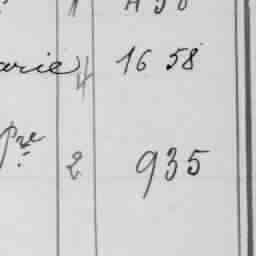 arie 4 16 58
pre 2 935